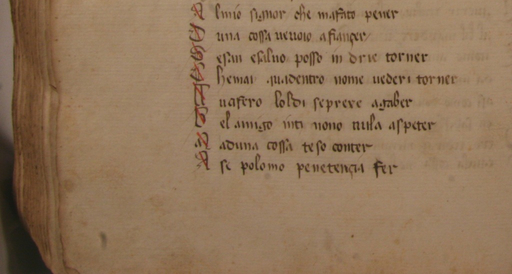 linio signor che mafato pener
una cossa ueuoio afiancer
esan esaluo posso in drie torner
hemai quadentro nome uederi torner
uasero loldi seprexe agaber
el amigo inti nono nula aspeter
aduna cossa teso conter
se polomo penetençia fer